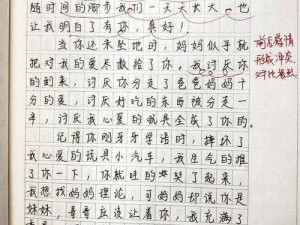 随时间的脚步我们一天天长大，也
让我明白了有你，真好！
当你还未坠地时，妈妈似乎就
把对我的爱尽数给了你，我讨厌你
的到来，讨厌你分走了爸爸妈妈十
分的爱，讨厌好吃的东西被分走一
半，讨厌我心爱的玩具全成了你的。
记得你刚牙牙学语时，摔坏了
我心爱的玩具小汽车，我生气的推
了你一下，你就哇的哭了起来，
我想找妈妈理论，可妈妈却说你是
妹妹，哥哥应该让着你，我充满了
前后感情
形成冲突，
对比着烈